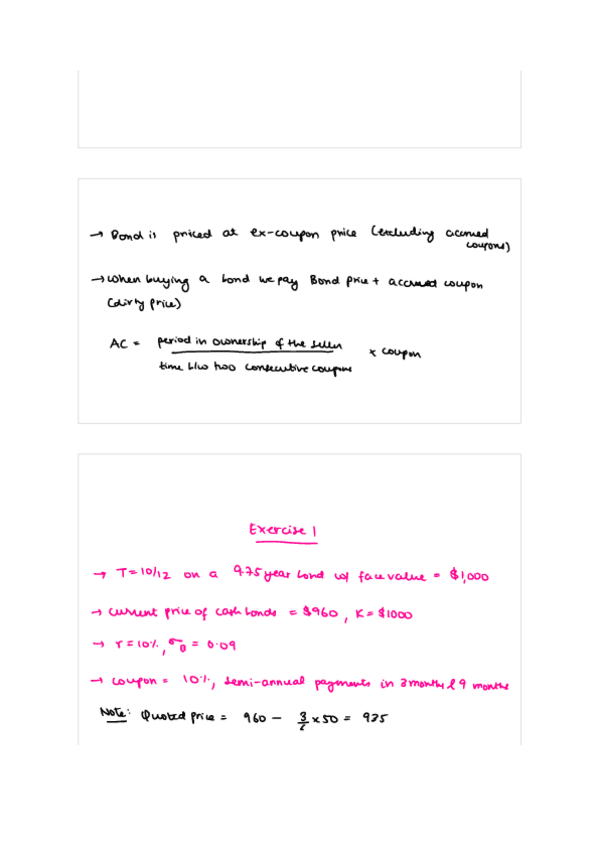 → Bond is priced at ex-coupon price (excluding accrued
coupons)
→ when buying a bond we pay Bond price + accrued coupon
(dirty price)
AC = period in ownership of the seller
time b/w two consecutive coupons
x coupon
Exercise 1
→ T = 10/12 on a 9.75 year bond w/ face value = $1,000
→ current price of cash bonds = $960, K = $1000
→ r = 10%, σB = 0.09
→ coupon = 10%, semi-annual payments in 3 months & 9 months
Note: Quoted price = 960 - 3/6 x 50 = 935